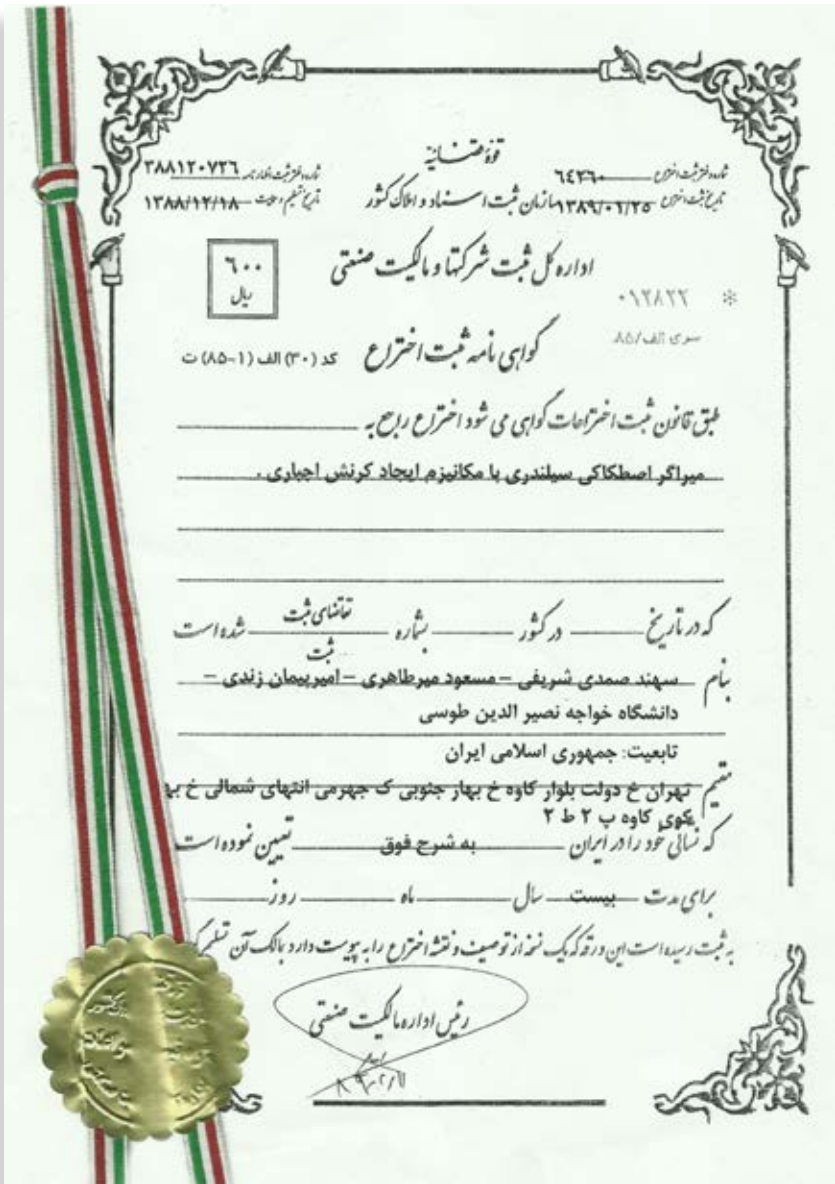 قوه قضائیه
شماره دفتر ثبت اختراع ۶۴۲۶۰
شماره دفتر ثبت اظهارنامه ۳۸۸۱۲۰۷۲۶
تاریخ ثبت اختراع ۱۳۸۹/۰۲/۲۵ سازمان ثبت اسناد و املاک کشور
تاریخ تنظیم و ۱۳۸۸/۱۲/۱۸
اداره کل ثبت شرکتها و مالکیت صنعتی
۶۰۰
ریال
* ۰۱۲۸۲۲
سری الف/۸۵
گواهی نامه ثبت اختراع کد (۳۰) الف (۱-۸۵) ت
طبق قانون ثبت اختراعات گواهی می شود اختراع راجع به
میراگر اصطکاکی سیلندری با مکانیزم ایجاد کرنش اجباری .
که در تاریخ در کشور بشماره تقاضای ثبت شده است
ثبت
بنام سهند صمدی شریفی – مسعود میرطاهری – امیرپیمان زندی –
دانشگاه خواجه نصیر الدین طوسی
تابعیت: جمهوری اسلامی ایران
مقیم تهران خ دولت بلوار کاوه خ بهار جنوبی ک جهرمی انتهای شمالی خ
کوی کاوه پ ۲ ط ۲
که نشانی خود را در ایران به شرح فوق تعیین نموده است
برای مدت بیست سال ماه روز
به ثبت رسیده است این ورقه که یک نسخه از توصیف و نقشه اختراع را به پیوست دارد بمالک آن
رئیس اداره مالکیت صنعتی